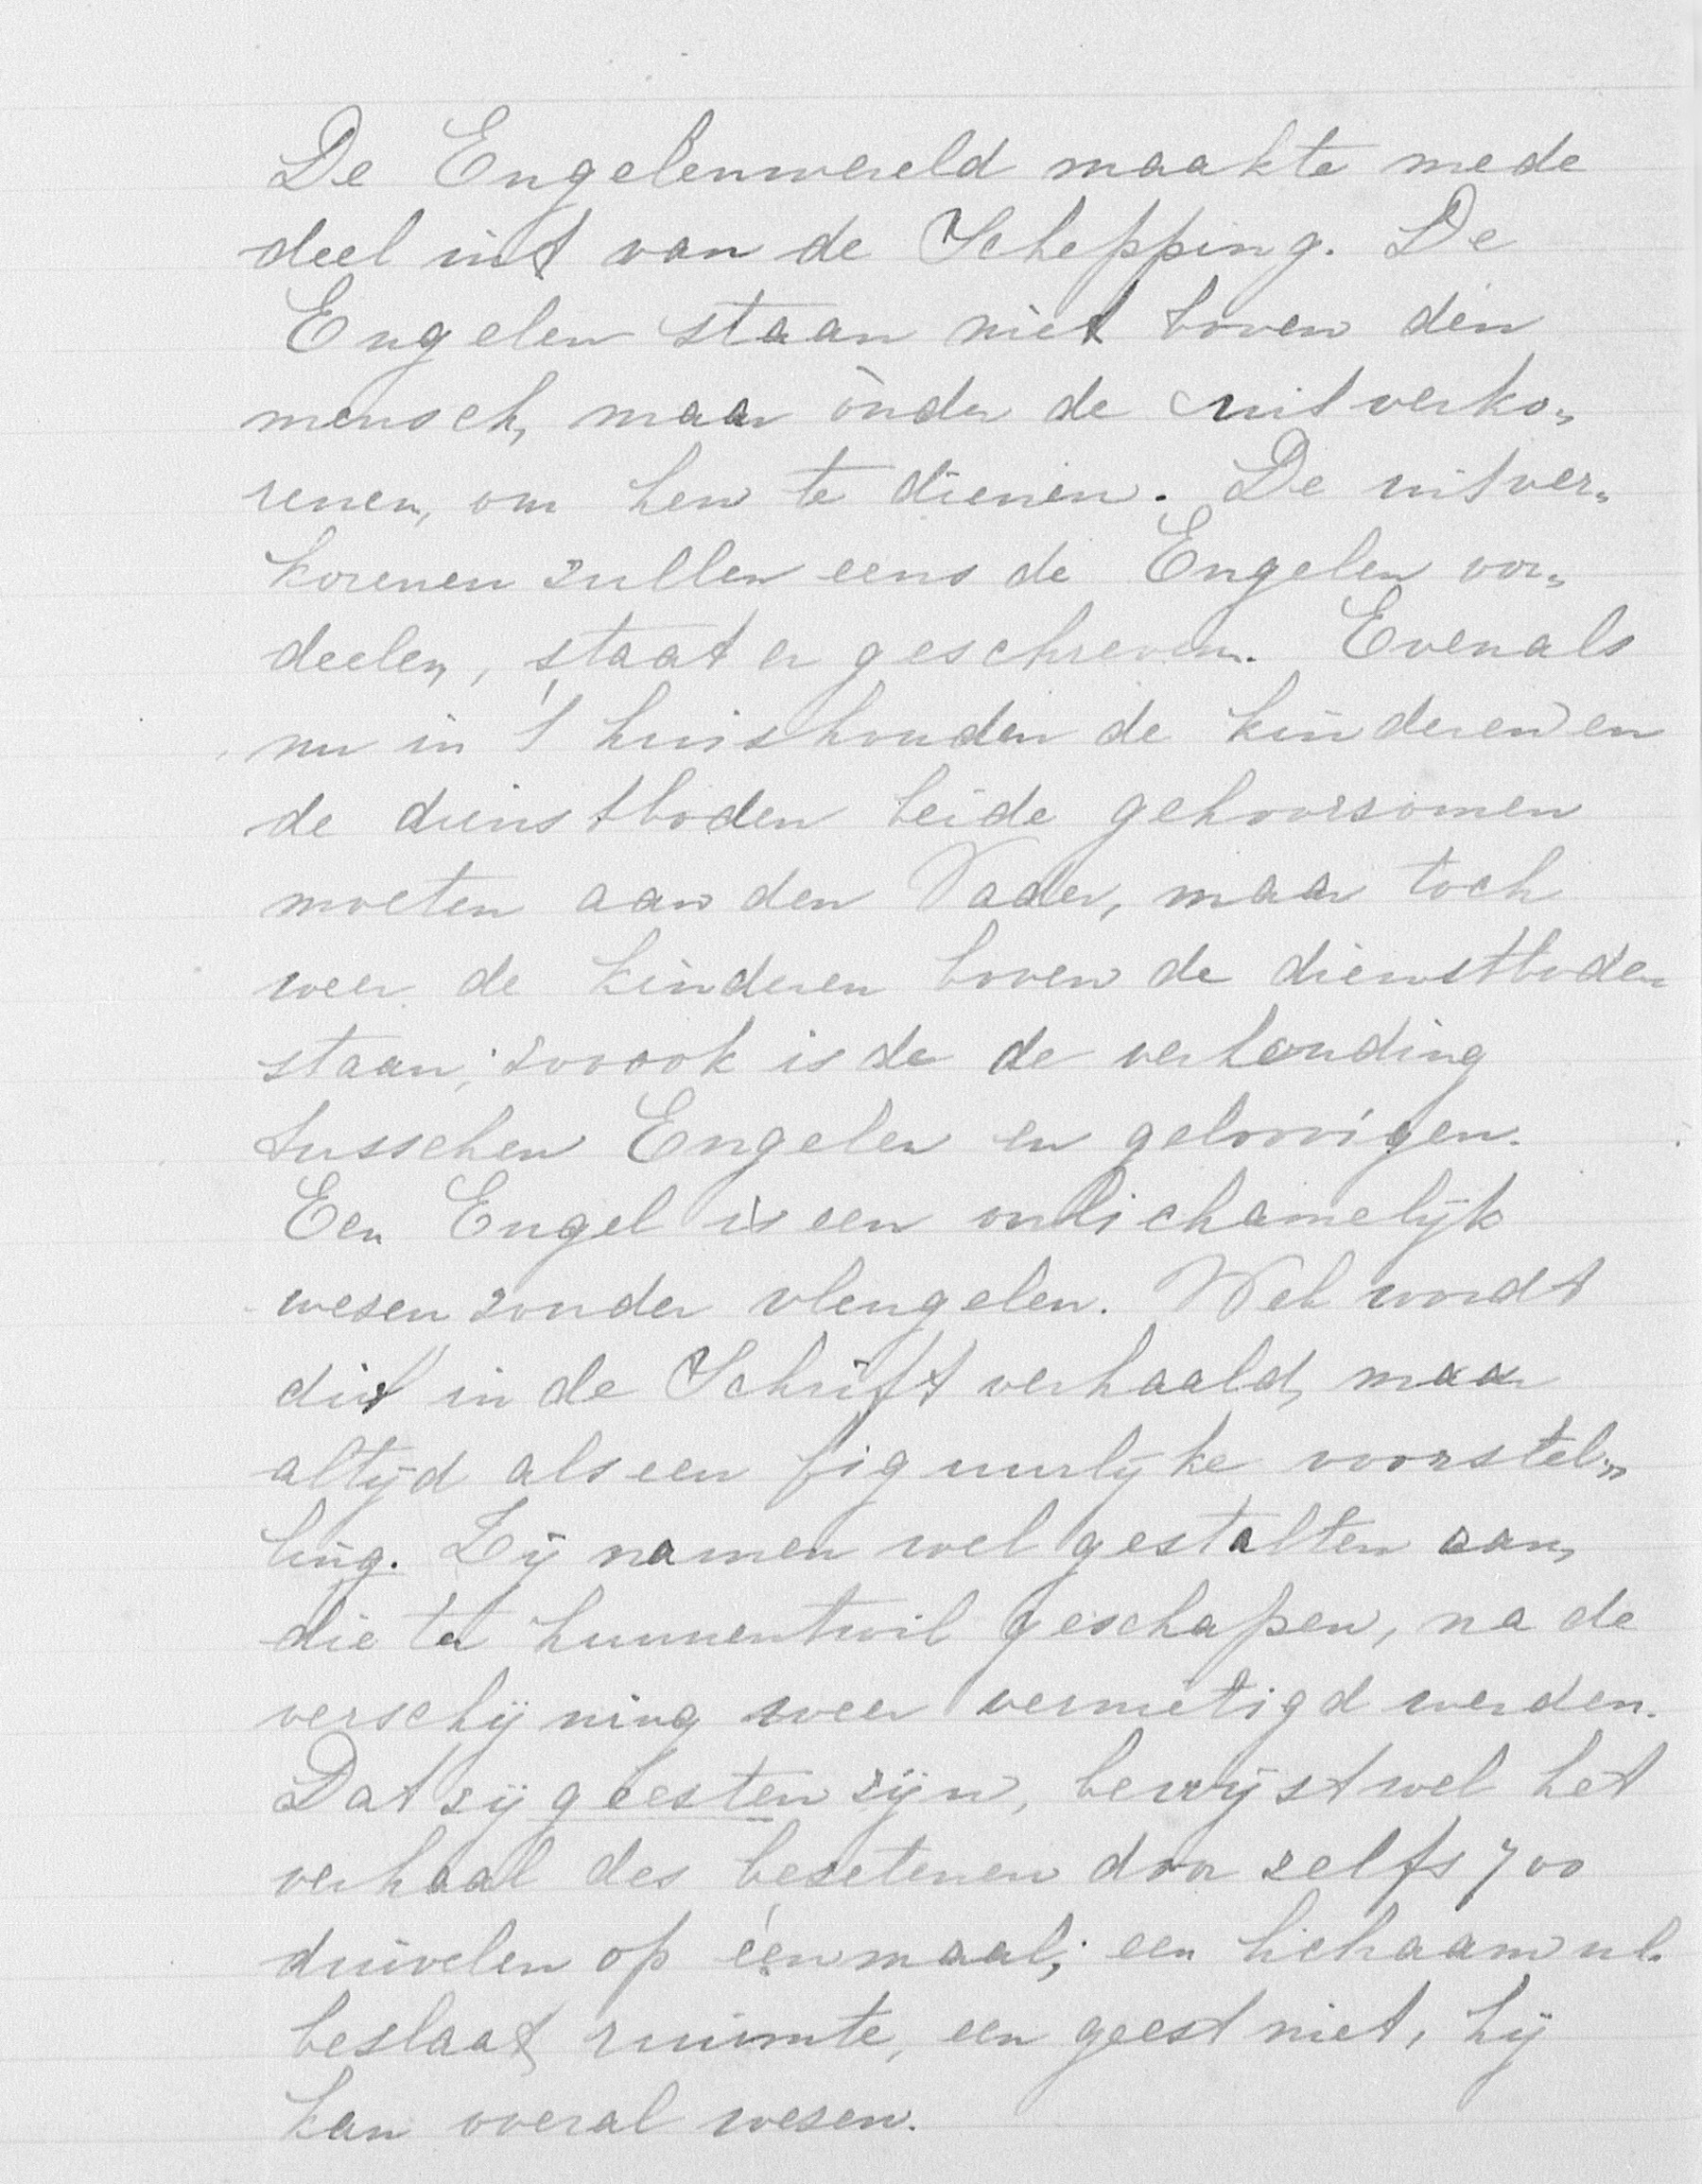 De Engelenwereld maakte mede
deel uit van de Schepping. De
Engelen staan niet boven den
mensch, maar ònder de uitverko„
renen, om hen te dienen. De uitver„
korenen zullen eens de Engelen oor„
deelen, staat er geschreven. Evenals
nu in 't huishouden de kinderen en
de dienstboden beide gehoorzamen
moeten aan den Vader, maar toch
weer de kinderen boven de dienstboden
staan; zooook is de de verhouding
tusschen Engelen en geloovigen.
Een Engel is een onlichamelijk
wezen zonder vleugelen. Wel wordt
dit in de Schrift verhaald, maar
altijd als een figuurlijke voorstel„
ling. Zij namen wel gestalten aan,
die ter hunnentwil geschapen, na de
verschijning weer vernietigd werden.
Dat zij geesten zijn, bewijst wel het
verhaal des bezetenen door zelfs 700
duivelen op éénmaal; een lichaam nl.
beslaat ruimte, een geest niet, hij
kan overal wezen.